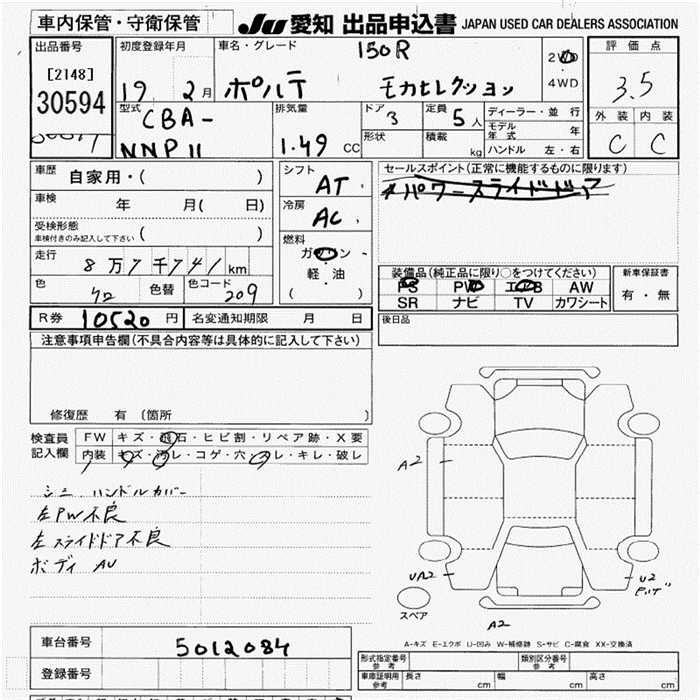 車内保管・守衛保管
JU 愛知 出品申込書 JAPAN USED CAR DEALERS ASSOCIATION
出品番号
[2148]
30594
初度登録年月
19 2月
車名・グレード
150R
ポルテ
2WD
4WD
評価点
3.5
外装 内装
C C
型式
CBA-
NNP11
排気量
1.49 CC
ドア
3
定員
5人
形状
積載 kg
ディーラー・並行
モデル年式 年
ハンドル 左・右
車歴 自家用・( )
車検 年 月( 日)
受検形態
車検付きのみ記入して下さい ( )
走行
8万7千741km
色
色替
色コード
209
シフト
AT
冷房
AC
燃料
ガソリン
軽・油
( )
セールスポイント(正常に機能するものに限ります)
パワースライドドア
装備品(純正品に限り○をつけてください)
PS PW エアB AW
SR ナビ TV カワシート
新車保証書
有・無
R券 10520円 名変通知期限 月 日
後日品
注意事項申告欄(不具合内容等は具体的に記入して下さい)
修復歴 有(箇所 )
検査員
記入欄
FW キズ・飛石・ヒビ割・リペア跡・X要
内装 キズ・汚レ・コゲ・穴・スレ・キレ・破レ
ハンドルカバー
左PW不良
左スライドドア不良
ボディ AU
A2
UA2
U2
A2
スペア
A-キズ E-エクボ U-凹み W-補修跡 S-サビ C-腐食 XX-交換済
車台番号 5012084
登録番号
形式指定番号
参考
類別区分番号
参考
車庫証明用
参考
長さ cm 幅 cm 高さ cm